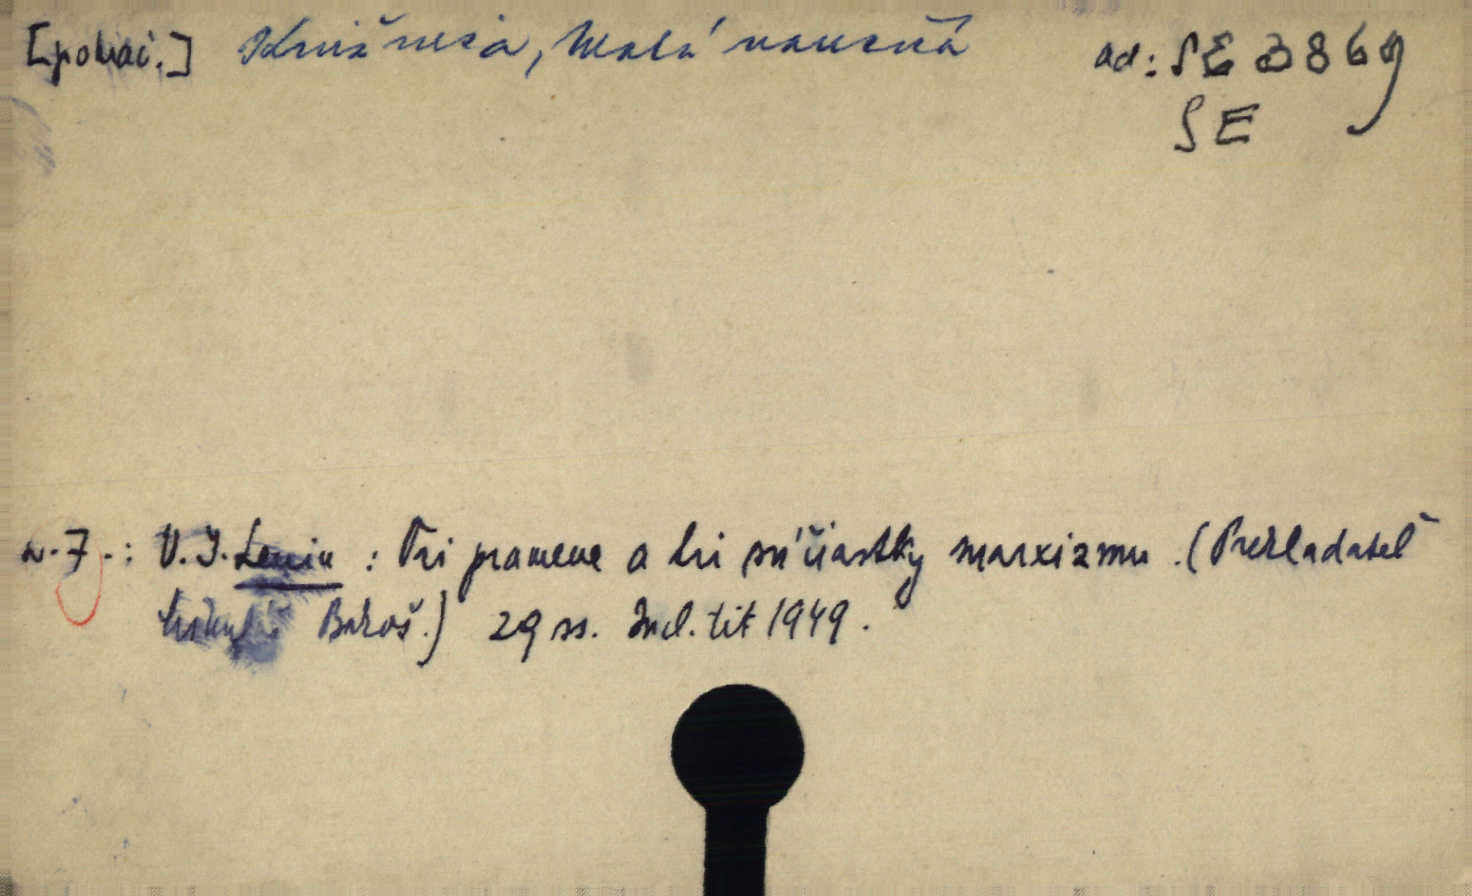 [pokrač.] Knižnica, Malá naučná ad: SE 3869
SE
sv. 7.: V. I. Lenin : Tri pramene a tri súčiastky marxizmu. (Prekladateľ
Mikuláš Bakoš.) 29 ss. Incl. tit 1949.